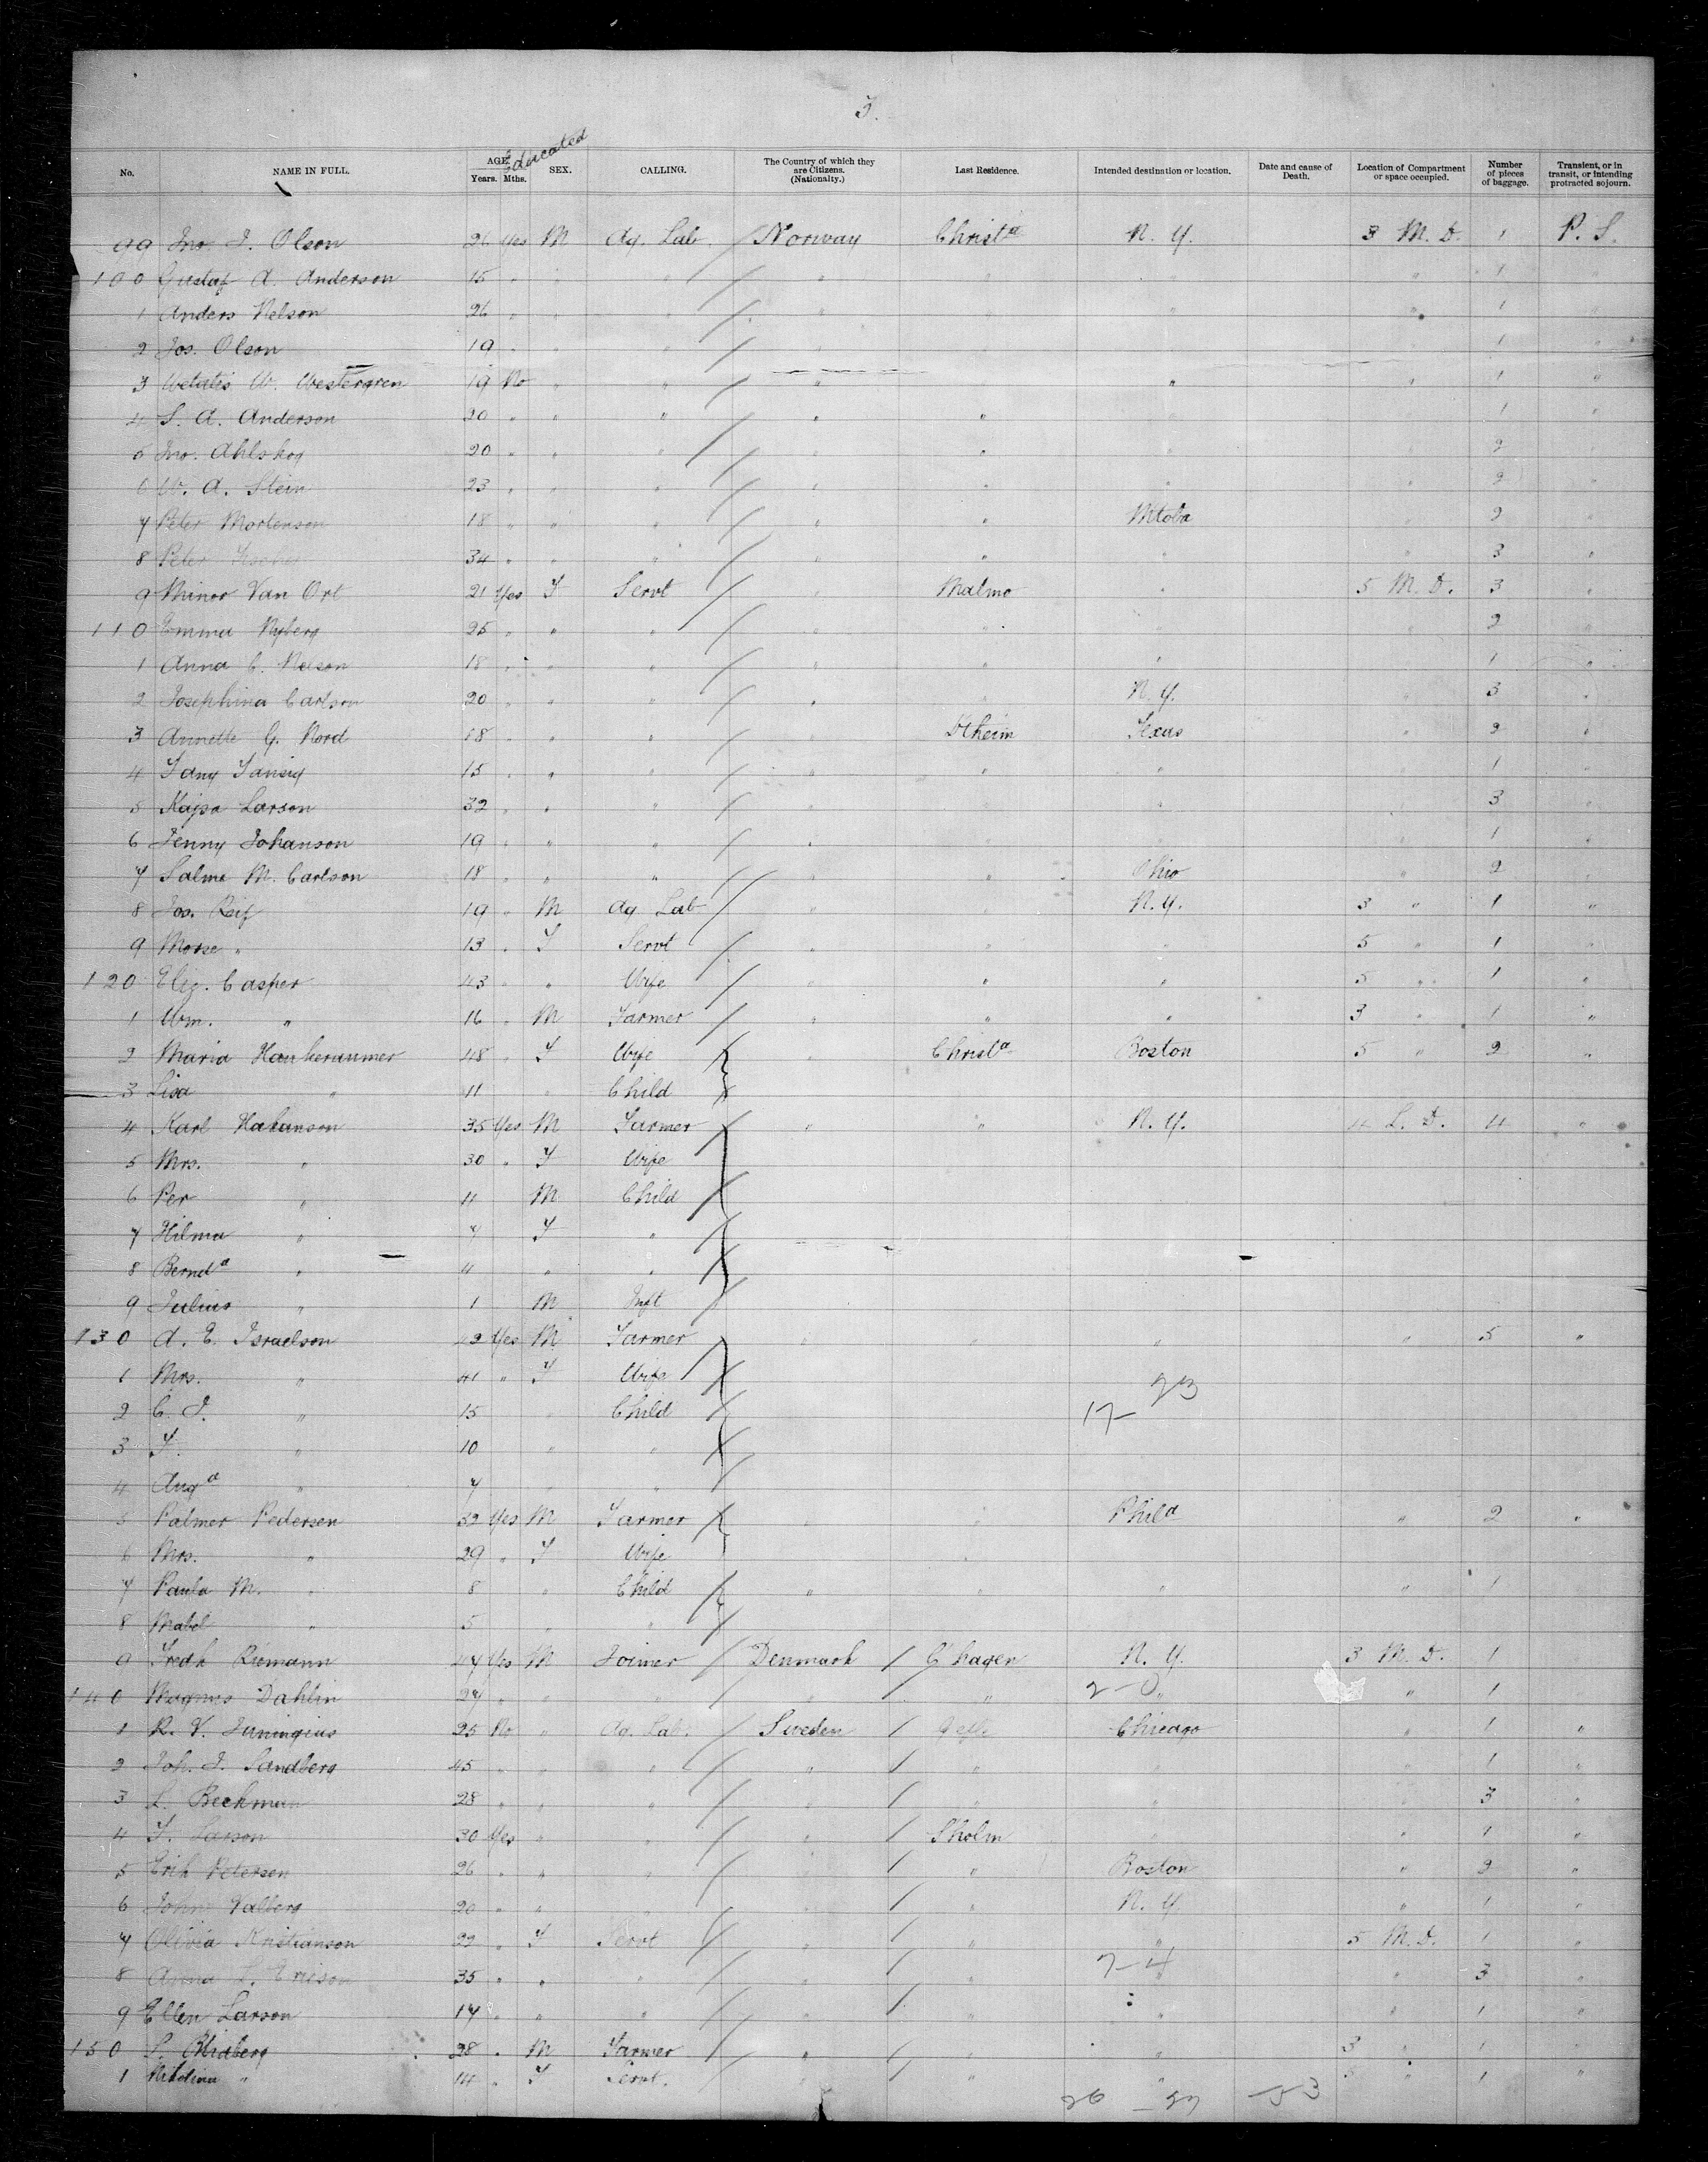 3.
No. NAME IN FULL. AGE. Years. Mths. Educated SEX. CALLING. The Country of which they are Citizens. (Nationalty.) Last Residence. Intended destination or location. Date and cause of Death. Location of Compartment or space occupied. Number of pieces of baggage. Transient, or in transit, or intending protracted sojourn.
99 Jno. J. Olson 26 Yes M Ag. Lab. / Norway Christa N. Y. 3 M. D. 1 P. S.
100 Gustaf A. Anderson 15 " " " / " " " " 1 "
1 Anders Nelson 26 " " " / " " " " 1 "
2 Jos. Olson 19 " " " / " " " " 1 "
3 W. Westergren 19 No " " / " " " " 1 "
4 S. A. Anderson 20 " " " / " " " " 1 "
5 Jno. Ahlskog 20 " " " / " " " " 2 "
6 W. A. Stein 23 " " " / " " " " 2 "
7 Peter Mortenson 18 " " " / " " Mtoba " 2 "
8 Peter 34 " " " / " " " " 3 "
9 Minor Van Ort 21 Yes F Servt / " Malmo " 5 M. D. 3 "
110 Emma Nyberg 25 " " " / " " " " 2 "
1 Anna C. Nelson 18 " " " / " " " " 1 "
2 Josephina Carlson 20 " " " / " " N. Y. " 3 "
3 Annette G. Nord 18 " " " / " Dtheim Texas " 2 "
4 Fany 15 " " " / " " " " 1 "
5 Kajsa Larson 32 " " " / " " " " 3 "
6 Jenny Johanson 19 " " " / " " " " 1 "
7 Salma M. Carlson 18 " " " / " " Ohio " 2 "
8 Jos. Reif 19 " M Ag Lab / " " N. Y. 3 " 1 "
9 Morse " 13 " F Servt / " " " 5 " 1 "
120 Eliz. Casper 43 " " Wife / " " " 5 " 1 "
1 Wm. " 16 " M Farmer / " " " 3 " 1 "
2 Maria 48 " F Wife / " Christa Boston 5 " 2 "
3 Lisa " 11 " Child /
4 Karl Hakanson 35 Yes M Farmer / " " N. Y. 4 L. D. 4 "
5 Mrs. " 30 " F Wife
6 Per " 11 M Child /
7 Hilma " 7 F " /
8 Bernda " 4 " " /
9 Julius " 1 M Inft /
130 A. E. Israelson 42 Yes M Farmer " " " " 5 "
1 Mrs. " 41 " F Wife /
2 C. J. " 15 " Child /
17- 23
3 F. " 10 " " /
4 Auga " 7 " " /
5 Palmer Pedersen 32 Yes M Farmer / " " Phila " 2 "
6 Mrs. " 29 " F Wife
7 Paula M. " 8 " Child / " " " " 1 "
8 Mabel " 5 " " /
9 Fredk Riemann 47 Yes M Joiner / Denmark / C'hagen N. Y. 3 M. D. 1
140 Magnus Dahlin 27 " " " / " / " " " 1
2-0
1 R. V. Juningius 25 No " Ag. Lab. / Sweden / Gefle Chicago " 1 "
2 Joh. J. Sandberg 45 " " " / " / " " " 1 "
3 L. Beckman 28 " " " / " / " " " 3 "
4 F. Larson 30 Yes " " / " / S'holm " " 1 "
5 Erik Peterson 26 " " " / " / " Boston " 2 "
6 John Valberg 20 " " " / " / " N. Y. " 1 "
7 Olivia Kristianson 22 " F Servt / " / " " 5 M. D. 1 "
8 Anna L. Ericson 35 " " " / " / " " " 3 "
7-4
9 Ellen Larson 17 " " " / " / " " " 1 "
150 S. Blidberg 28 " M Farmer / " / " " 3 " 1 "
1 " 14 " F Servt. / " / " " 5 " 1 "
26 - 27 -53